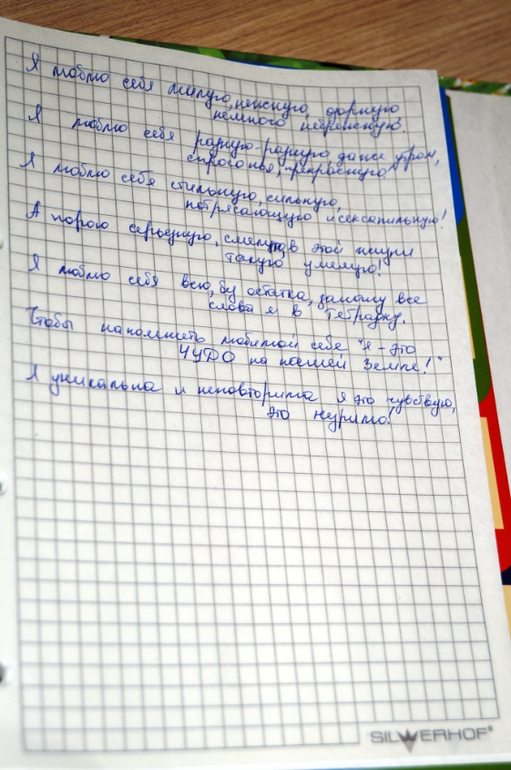 Я люблю себя милую, нежную, добрую
немного небрежную.
Я люблю себя разную-разную, даже утром,
спросонья, прекрасную
Я люблю себя стильную, сильную,
потрясающую и сексапильную!
А порою серьезную, смелую, в этой жизни
такую умелую!
Я люблю себя всю, без остатка, запишу все
слова я в тетрадку.
Чтобы напомнить любимой себе "Я - это
ЧУДО на нашей Земле!"
Я уникальна и неповторима я это чувствую,
это зримо!
SILWERHOF®